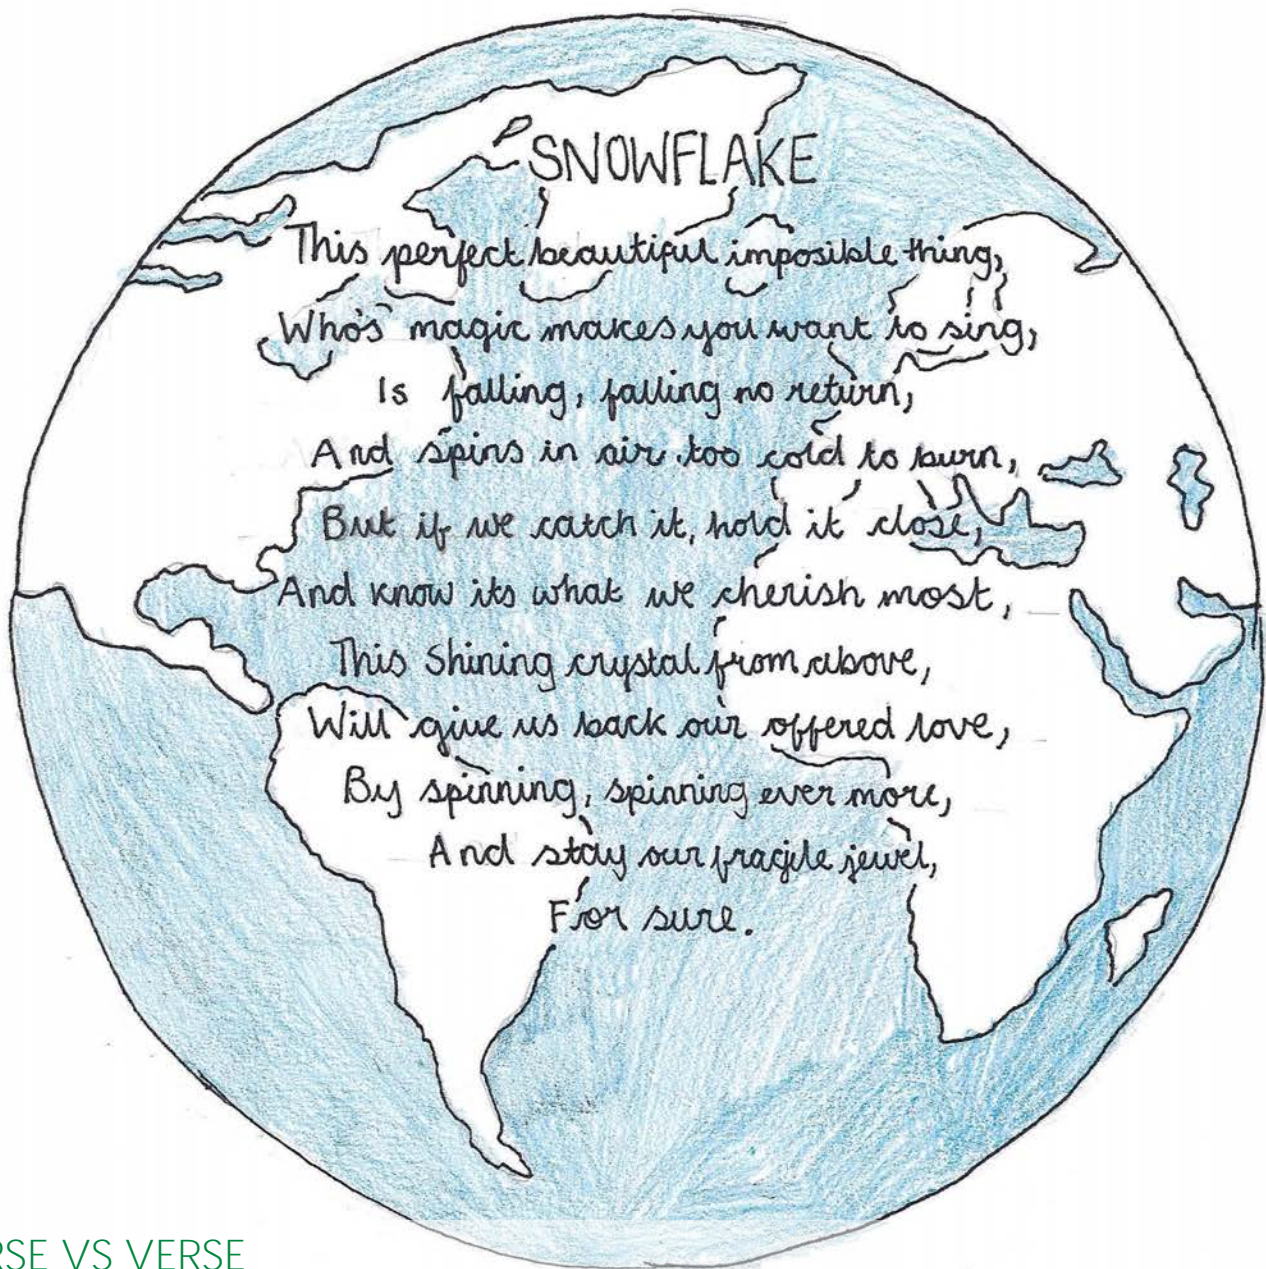 SNOWFLAKE
This perfect beautiful imposible thing,
Who's magic makes you want to sing,
Is falling, falling no return,
And spins in air too cold to burn,
But if we catch it, hold it close,
And know its what we cherish most,
This Shining crystal from above,
Will give us back our offered love,
By spinning, spinning ever more,
And stay our fragile jewel,
For sure.
RSE VS VERSE